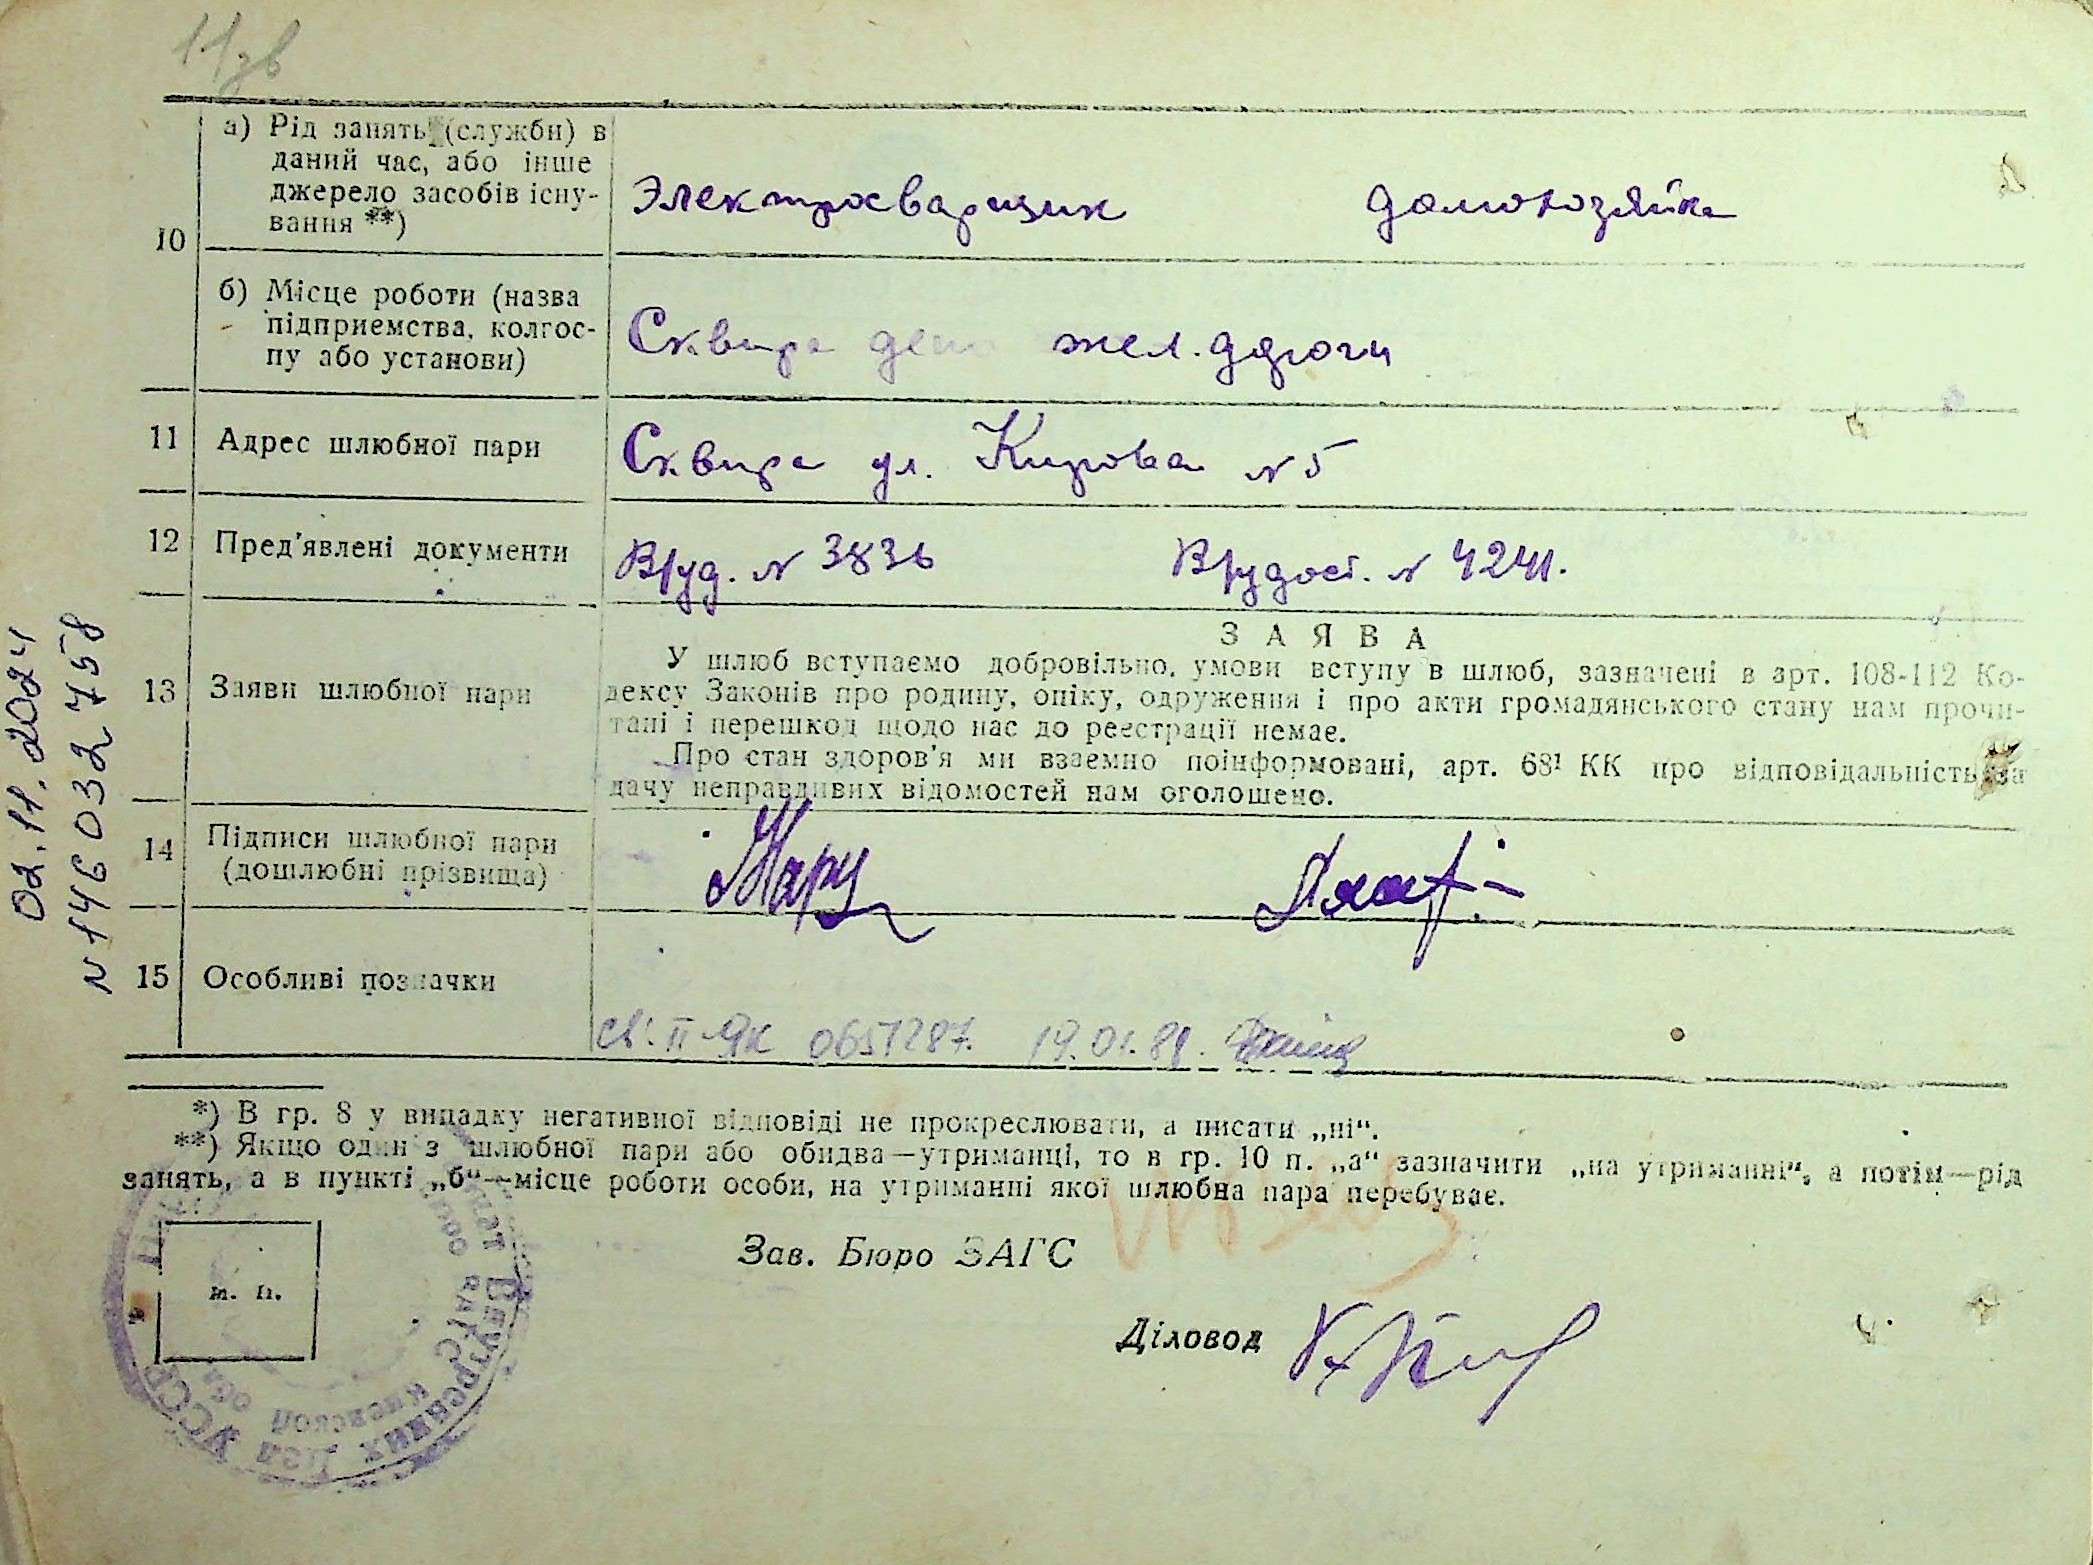 11зв
а) Рід занять (служби) в
даний час, або інше
джерело засобів існу-
вання **)
Электросварщик домохозяйка
10
б) Місце роботи (назва
підприємства, колгос-
пу або установи)
Сквира депо жел. дороги
11 Адрес шлюбної пари
Сквира ул. Кирова № 5
12 Пред'явлені документи
В/уд. № 3836 В/удост. № 4241.
13 Заяви шлюбної пари
ЗАЯВА
У шлюб вступаємо добровільно, умови вступу в шлюб, зазначені в арт. 108-112 Ко-
дексу Законів про родину, опіку, одруження і про акти громадянського стану нам прочи-
тані і перешкод щодо нас до реєстрації немає.
Про стан здоров'я ми взаємно поінформовані, арт. 68¹ КК про відповідальність за
дачу неправдивих відомостей нам оголошено.
14 Підписи шлюбної пари
(дошлюбні прізвища)
15 Особливі позначки
св. II ЯК 0651287. 19.01.81.
02.11.2024
№ 146032758
*) В гр. 8 у випадку негативної відповіді не прокреслювати, а писати „ні“.
**) Якщо один з шлюбної пари або обидва—утриманці, то в гр. 10 п. „а“ зазначити „на утриманні“, а потім—рід
занять, а в пункті „б“—місце роботи особи, на утриманні якої шлюбна пара перебуває.
м. п.
Зав. Бюро ЗАГС
Діловод
Внутренних Дел УССР
Киевской обл.